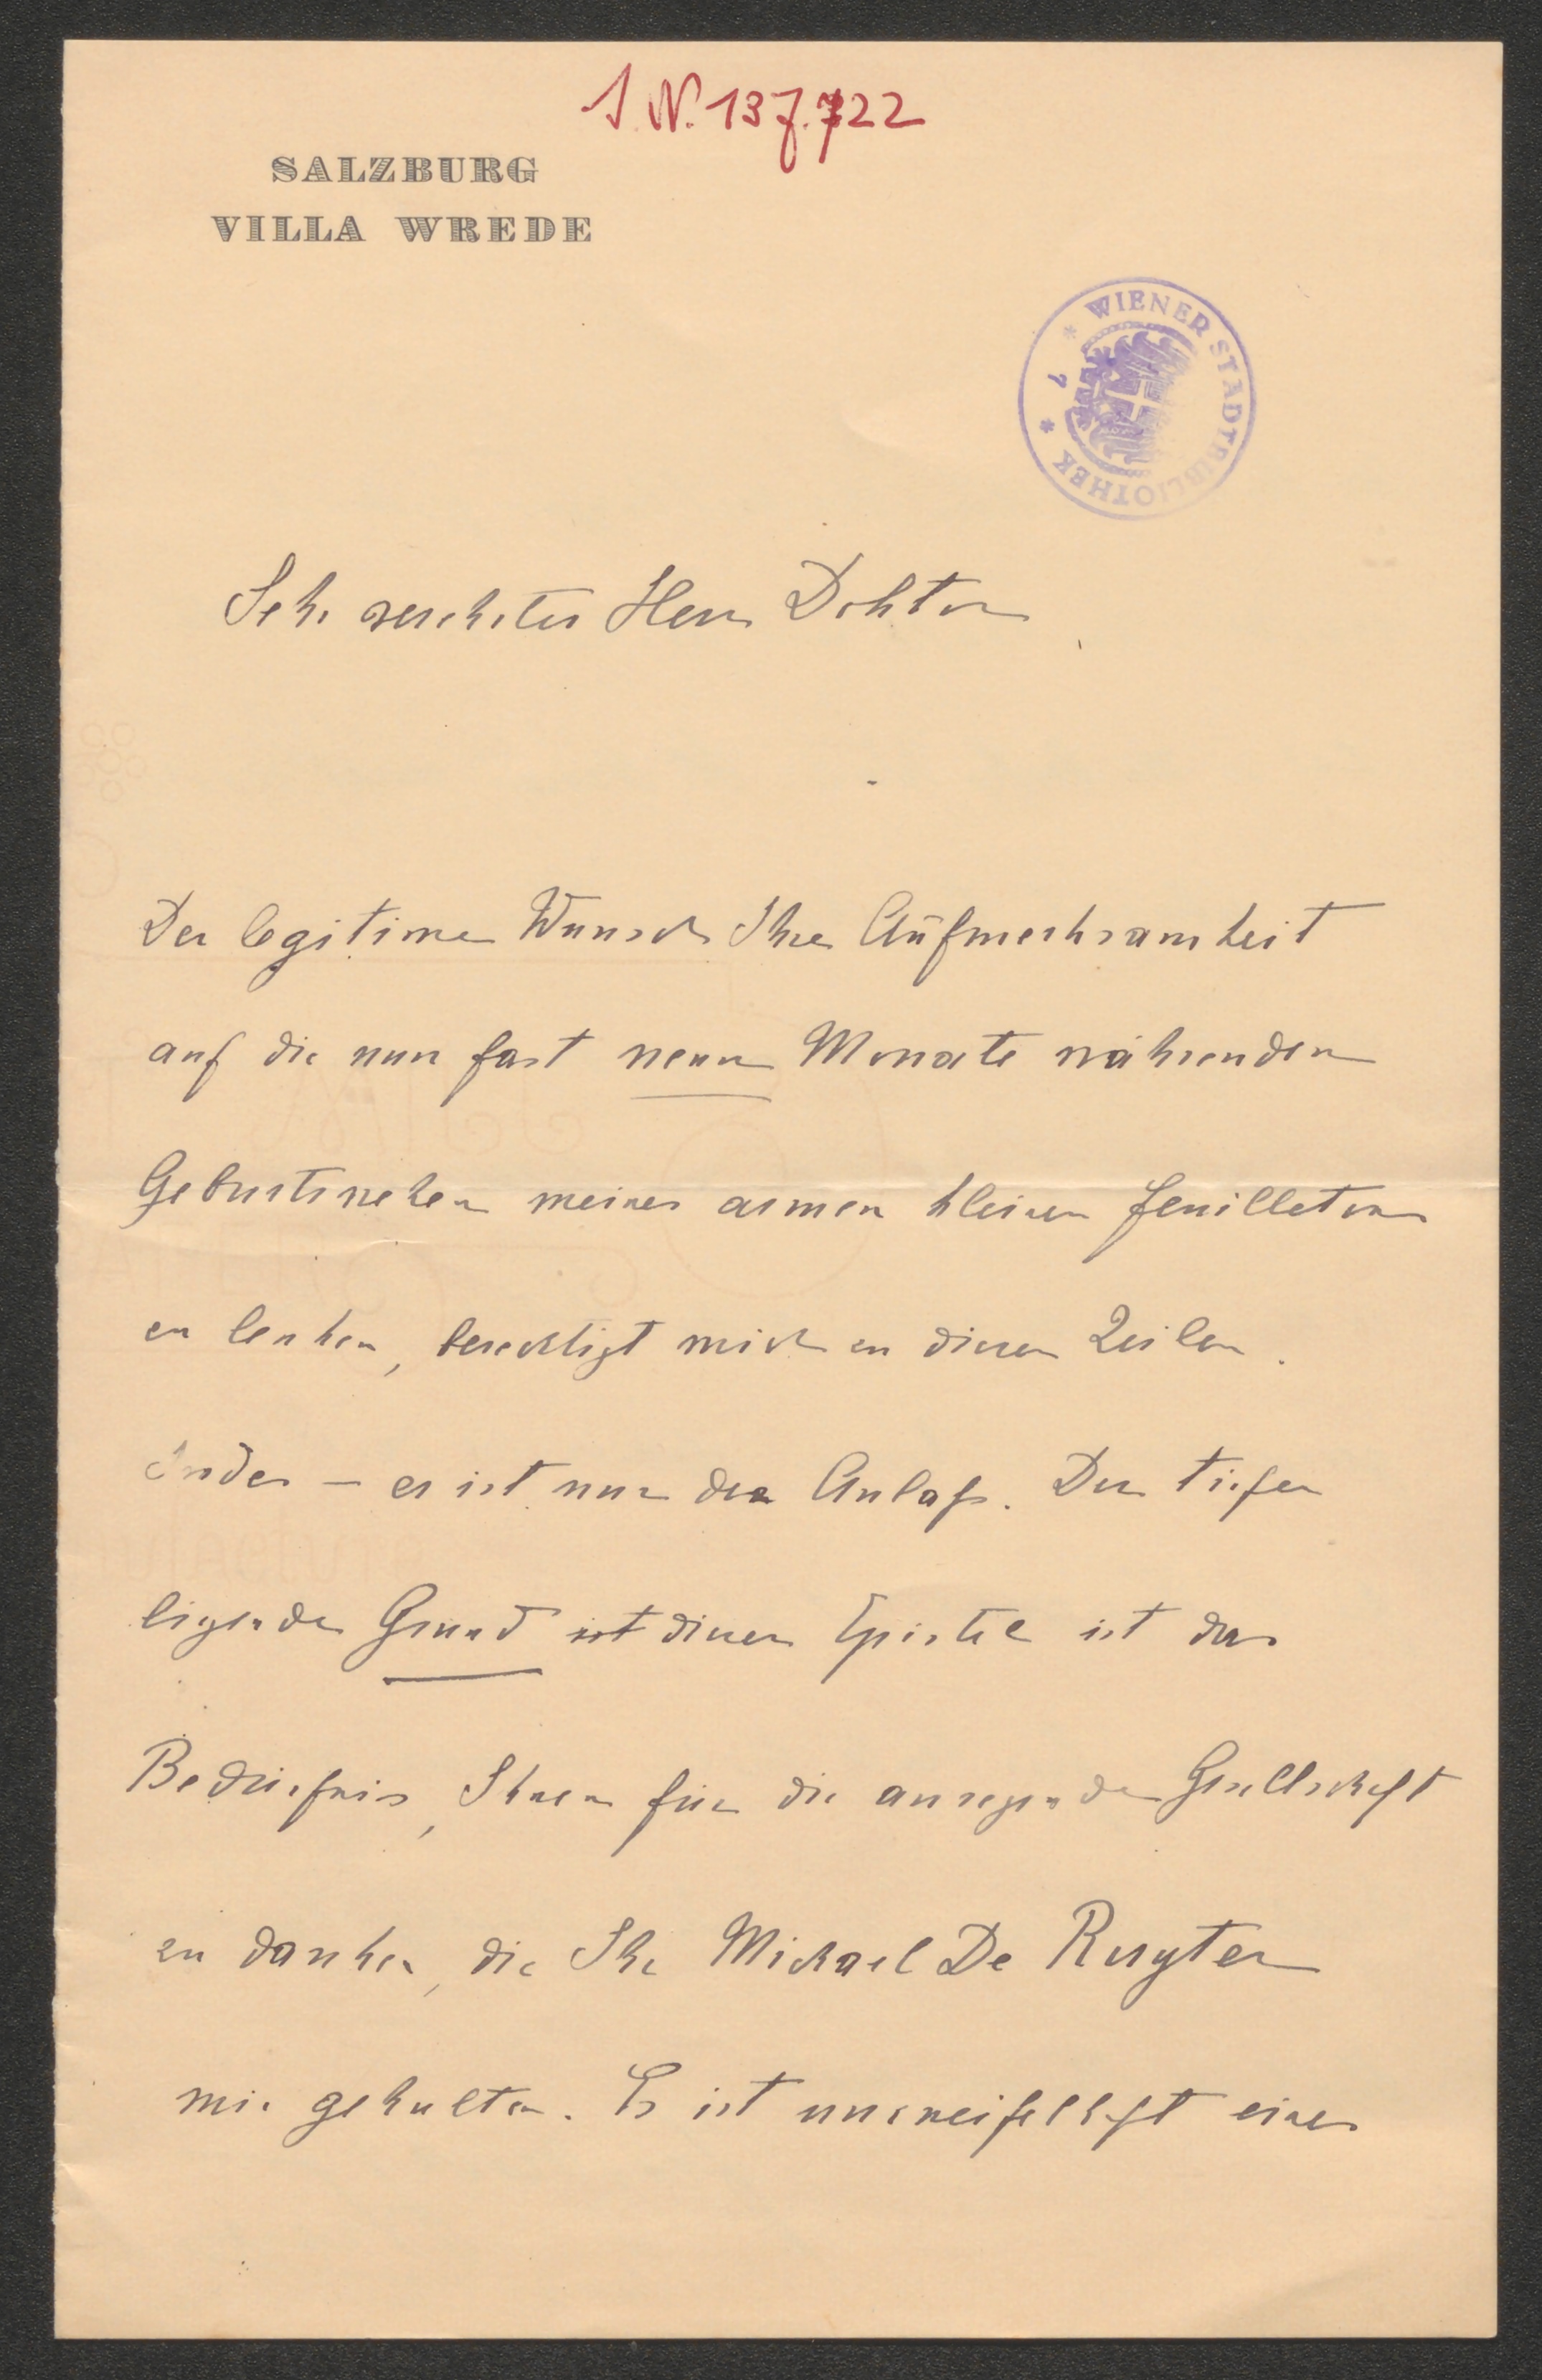 I.N. 137.722
SALZBURG
VILLA WREDE
* WIENER STADTBIBLIOTHEK * 7
Sehr verehrter Herr Doktor
Der legitime Wunsch Ihre Aufmerksamkeit
auf die nun fast neun Monate währenden
Geburtswehen meines armen kleinen Feuilletons
zu lenken, berechtigt mich zu diesen Zeilen.
Indes – es ist nur der Anlaß. Der tiefer
liegende Grund ist dieser Epistel ist das
Bedürfnis, Ihnen für die anregende Gesellschaft
zu danken, die Ihr Michael De Ruyter
mir gehalten. Es ist unzweifelhaft eines